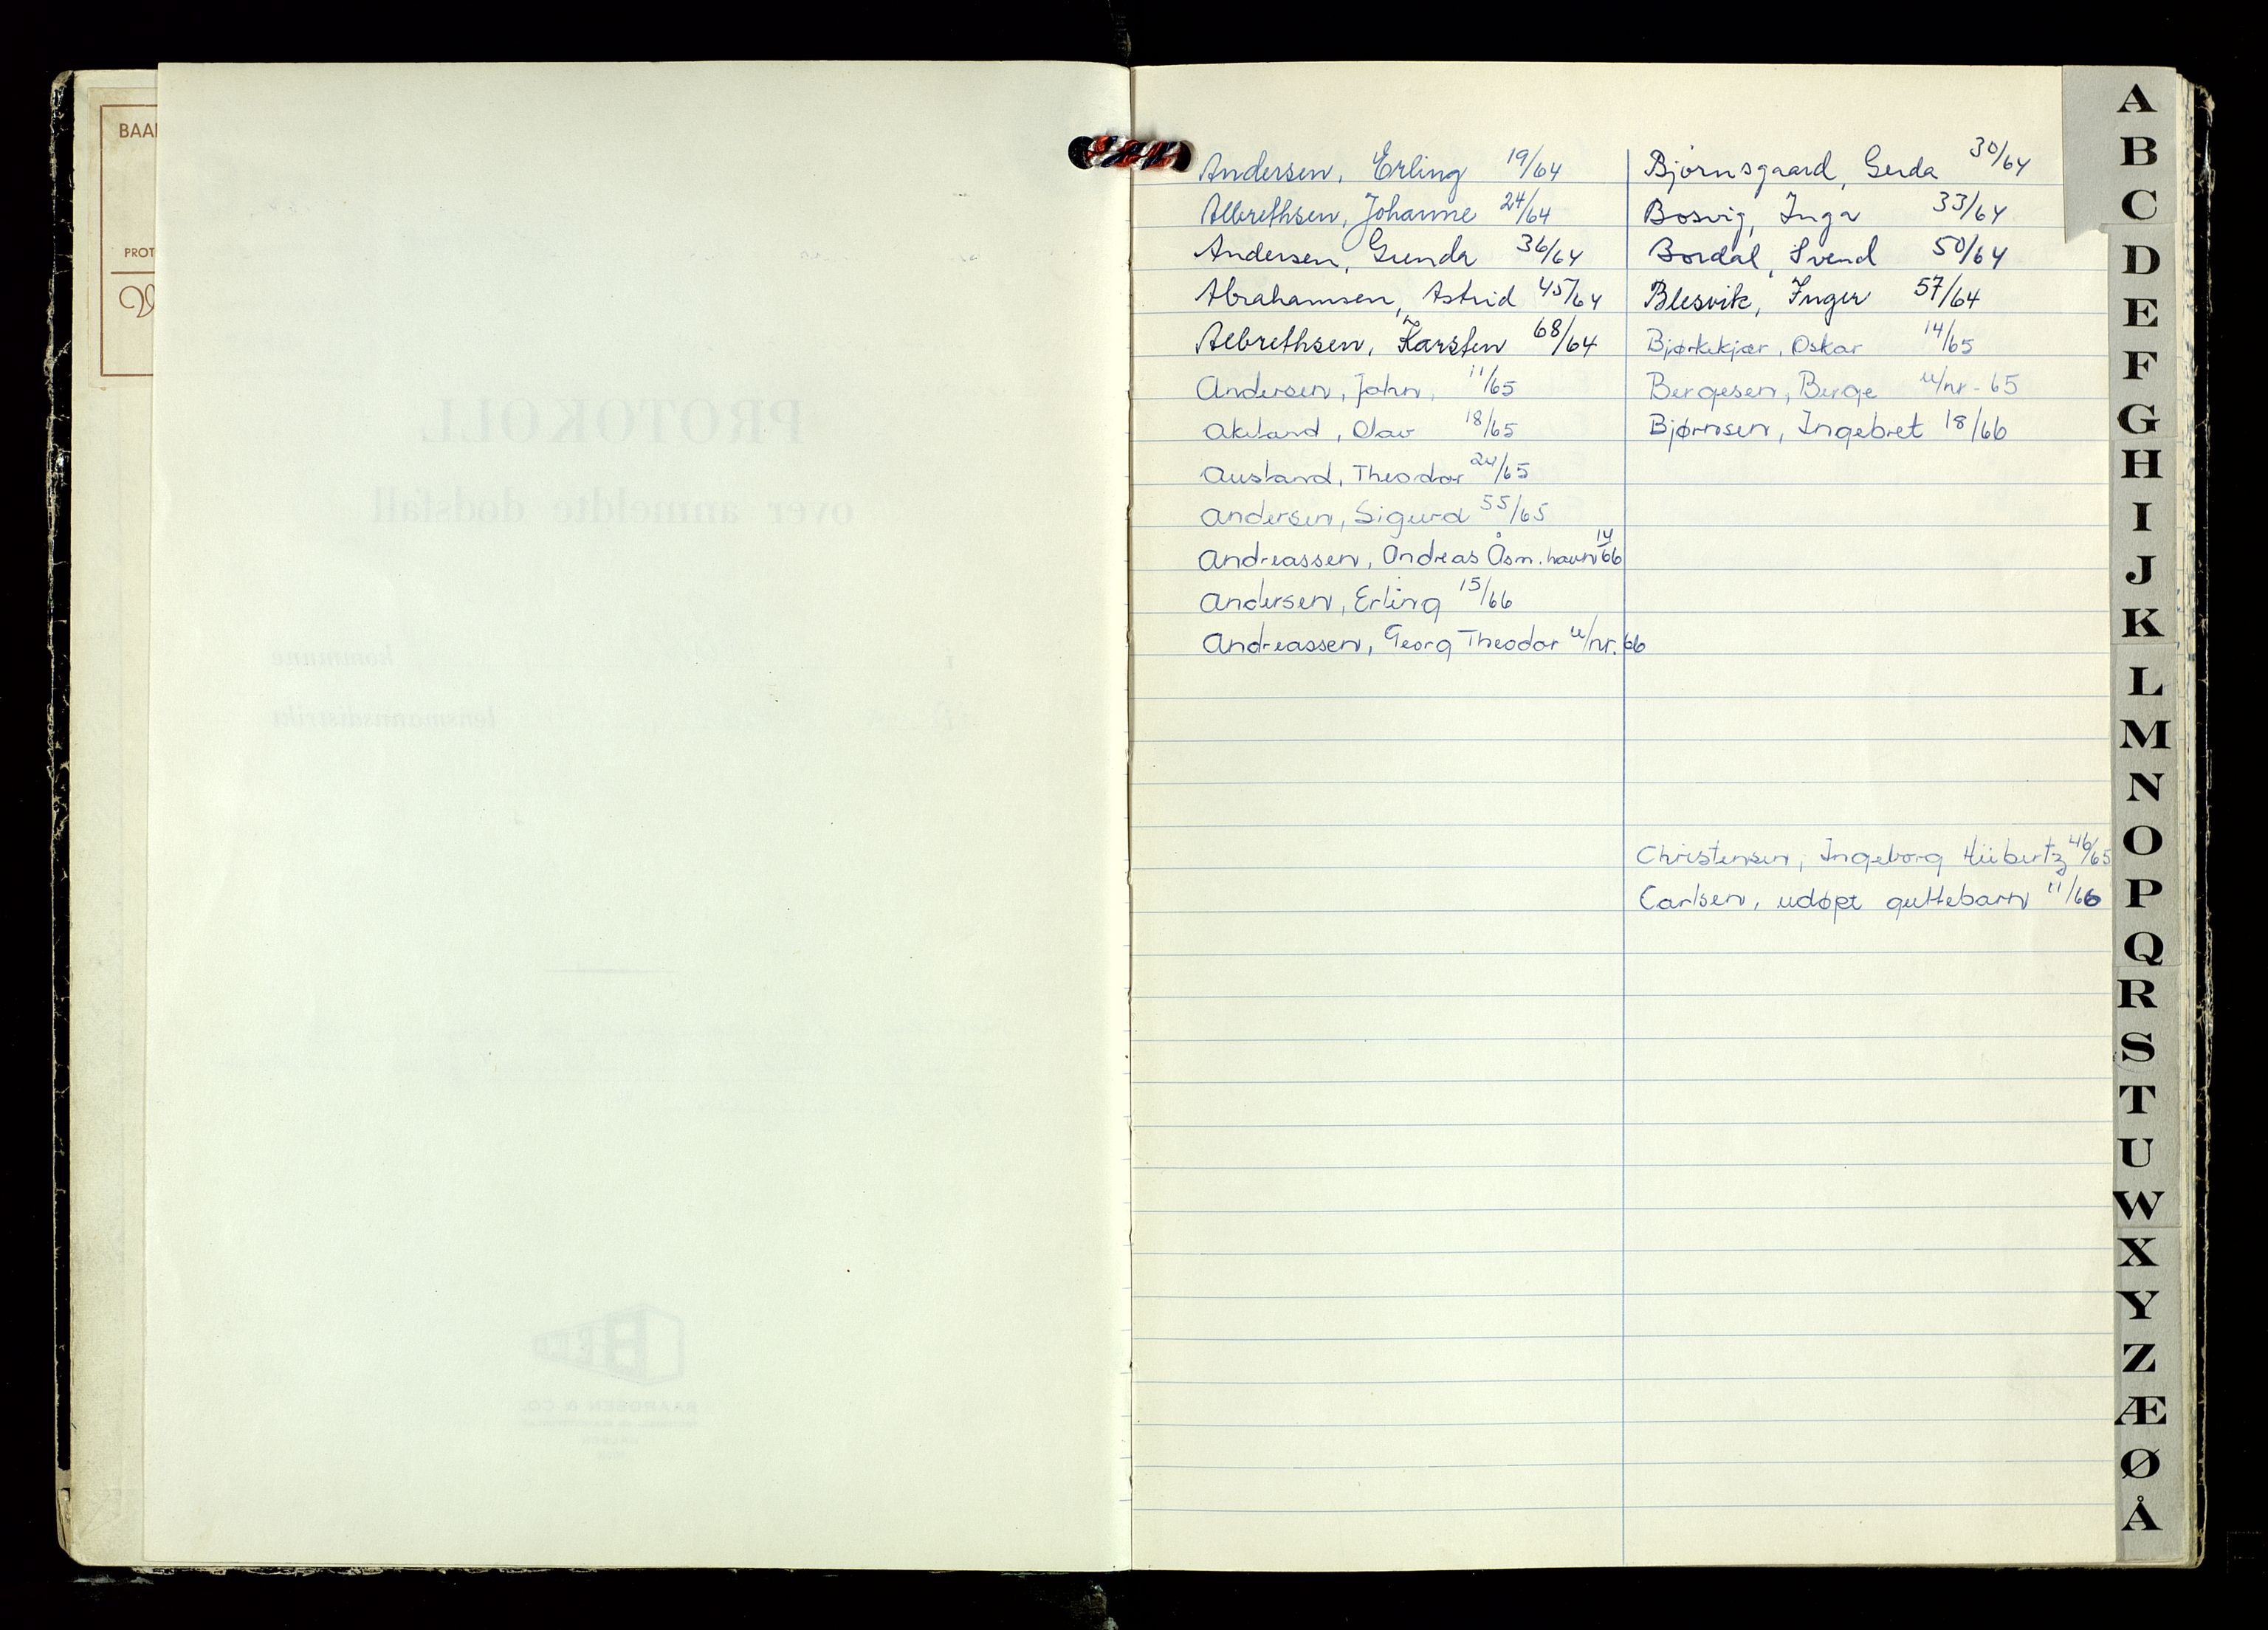 BAA
PROT
PROTOKOLL
over anmeldte dødsfall
i kommune
i lensmannsdistrikt
BAARDSEN & CO.
Andersen, Erling 19/64
Albrethsen, Johanne 24/64
Andersen, Gunda 36/64
Abrahamsen, Astrid 45/64
Albrethsen, Karsten 68/64
Andersen, John, 11/65
Akeland, Olav 18/65
Ausland, Theodor 24/65
Andersen, Sigurd 55/65
Andreassen, Andreas Åsm.havn 14/66
Andersen, Erling 15/66
Andreassen, Georg Theodor u/nr. 66
Bjørnsgaard, Gerda 30/64
Bosvig, Inga 33/64
Bordal, Svend 50/64
Blesvik, Inger 57/64
Bjørkekjær, Oskar 14/65
Bergesen, Berge u/nr-65
Bjørnsen, Ingebret 18/66
Christensen, Ingeborg Hübertz 46/65
Carlsen, udøpt guttebarn 11/66
A
B
C
D
E
F
G
H
I
J
K
L
M
N
O
P
Q
R
S
T
U
W
X
Y
Z
Æ
Ø
Å